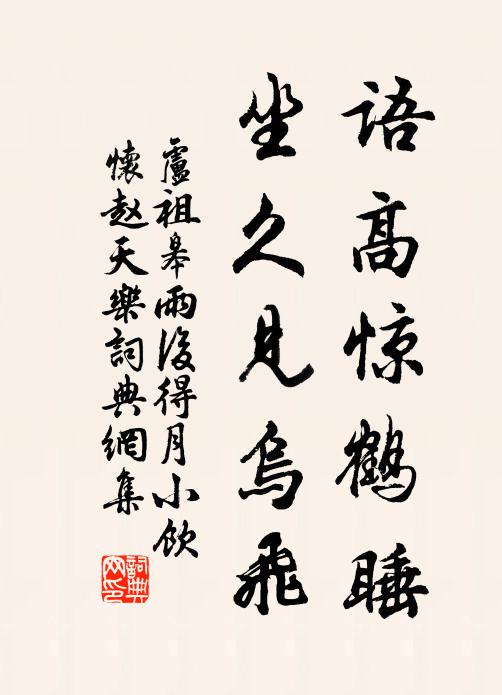 語高惊鶴睡
坐久見烏飛
盧祖皋雨後得月小飲
懷赵天樂詞典網集
詞典网印